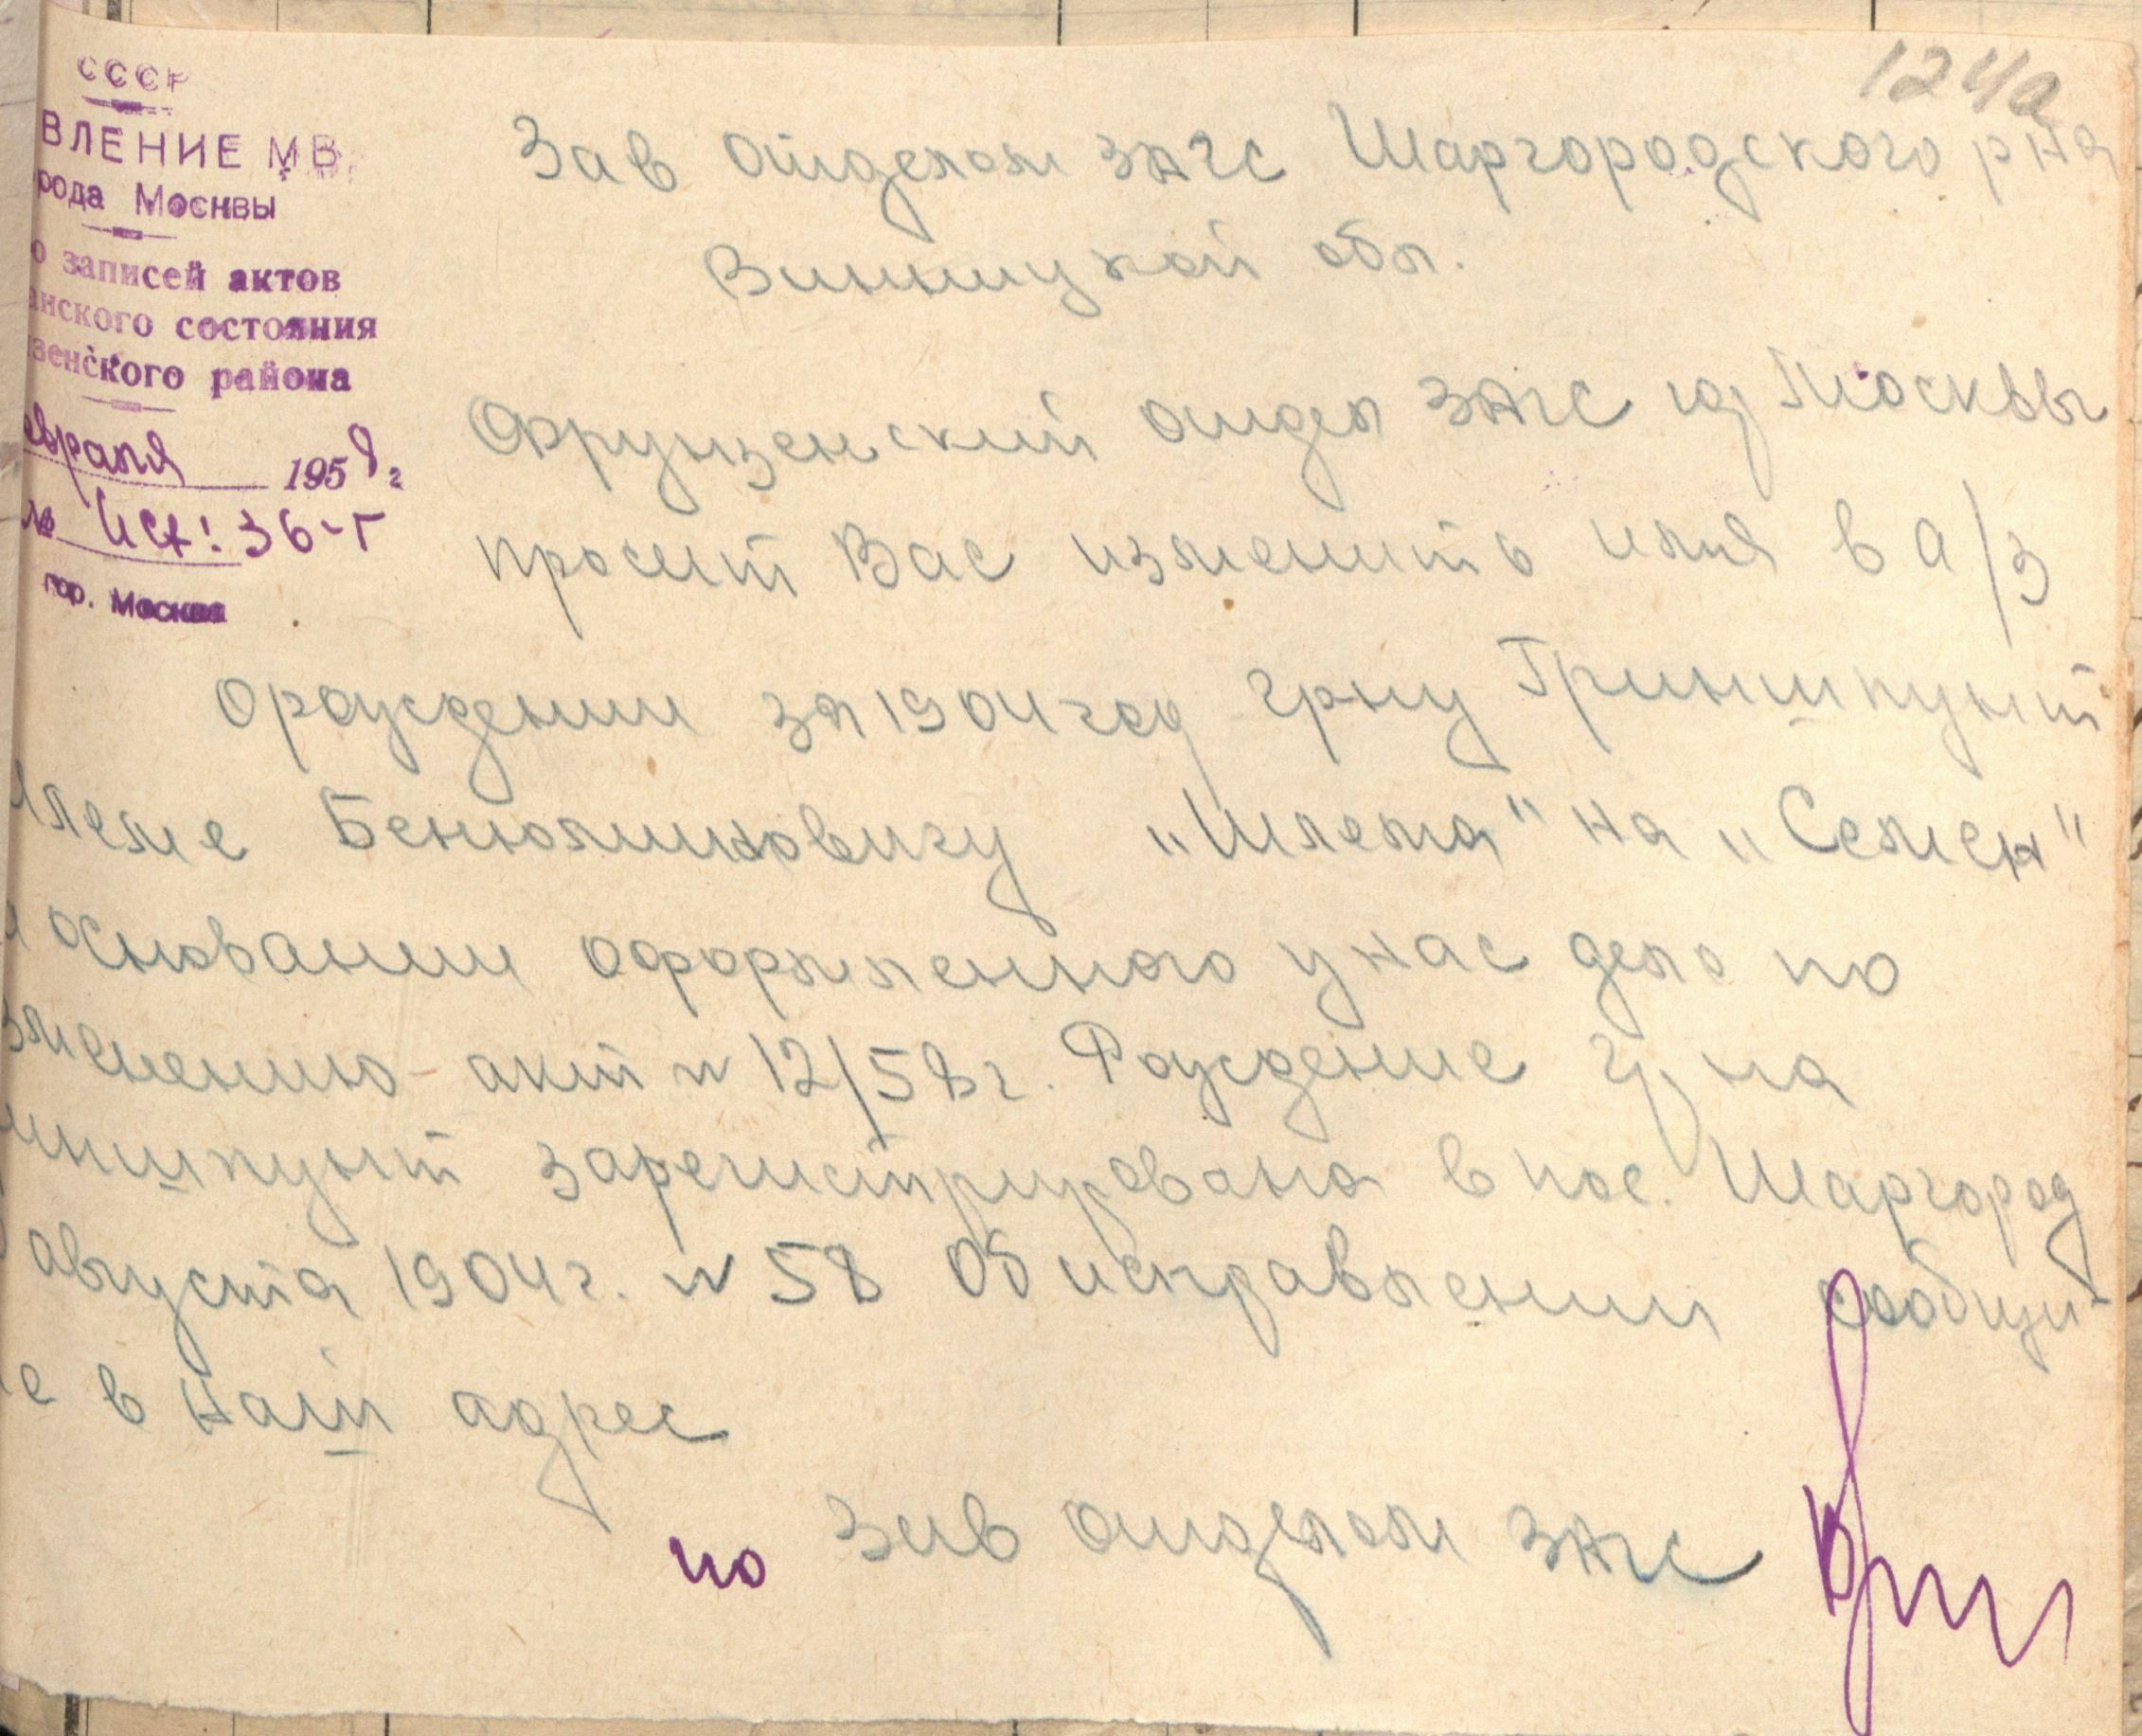 124а
СССР
ВЛЕНИЕ МВ
рода Москвы
о записей актов
анского состояния
зенского района
евраля 1958 г
№ Исх! 36-Г
гор. Москва
Зав отделом ЗАГС Шаргородского рна
Винницкой обл.
Фрунзенский отдел ЗАГС гор Москвы
просит Вас изменить имя в а/з
о рождении за 1904 год гр-ну Гриншпунт
Шлеме Бенюминовичу „Шлема" на „Семен"
а основании оформленного у нас дела по
зменению - акт № 12/58 г. Рождение гр-на
иншпунт зарегистрирована в пос. Шаргород
августа 1904 г. № 58 Об исправлении сообщи-
е в наш адрес
по Зав отделом ЗАГС